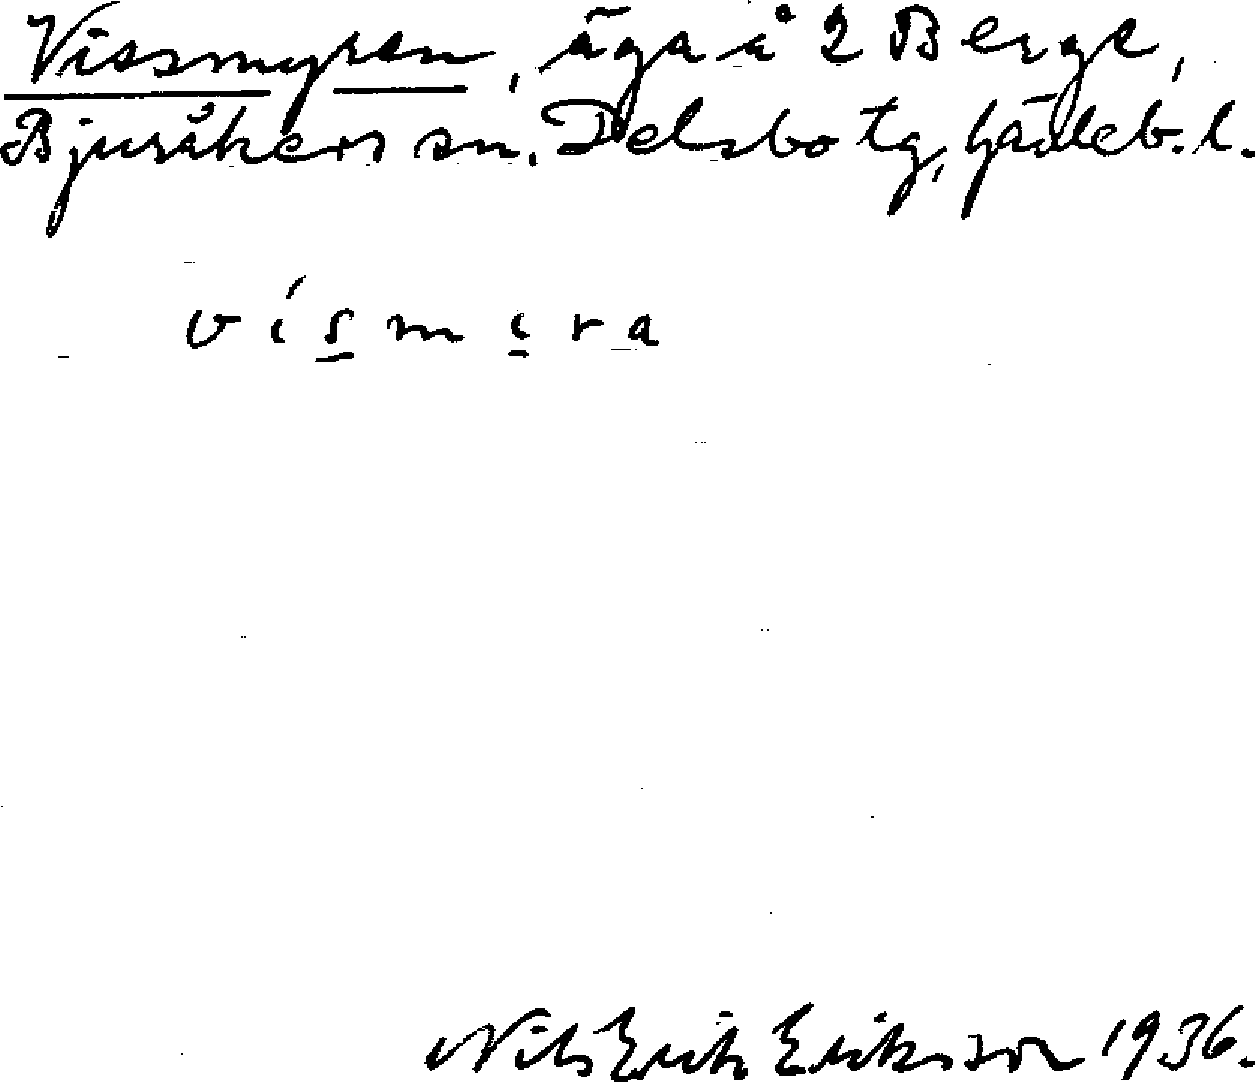 Vissmyren, äga å 2 Berge,
Bjuråkers sn. Delsbo tg, Gävleb. l.
vísmıra
Nils Erik Eriksson 1936.